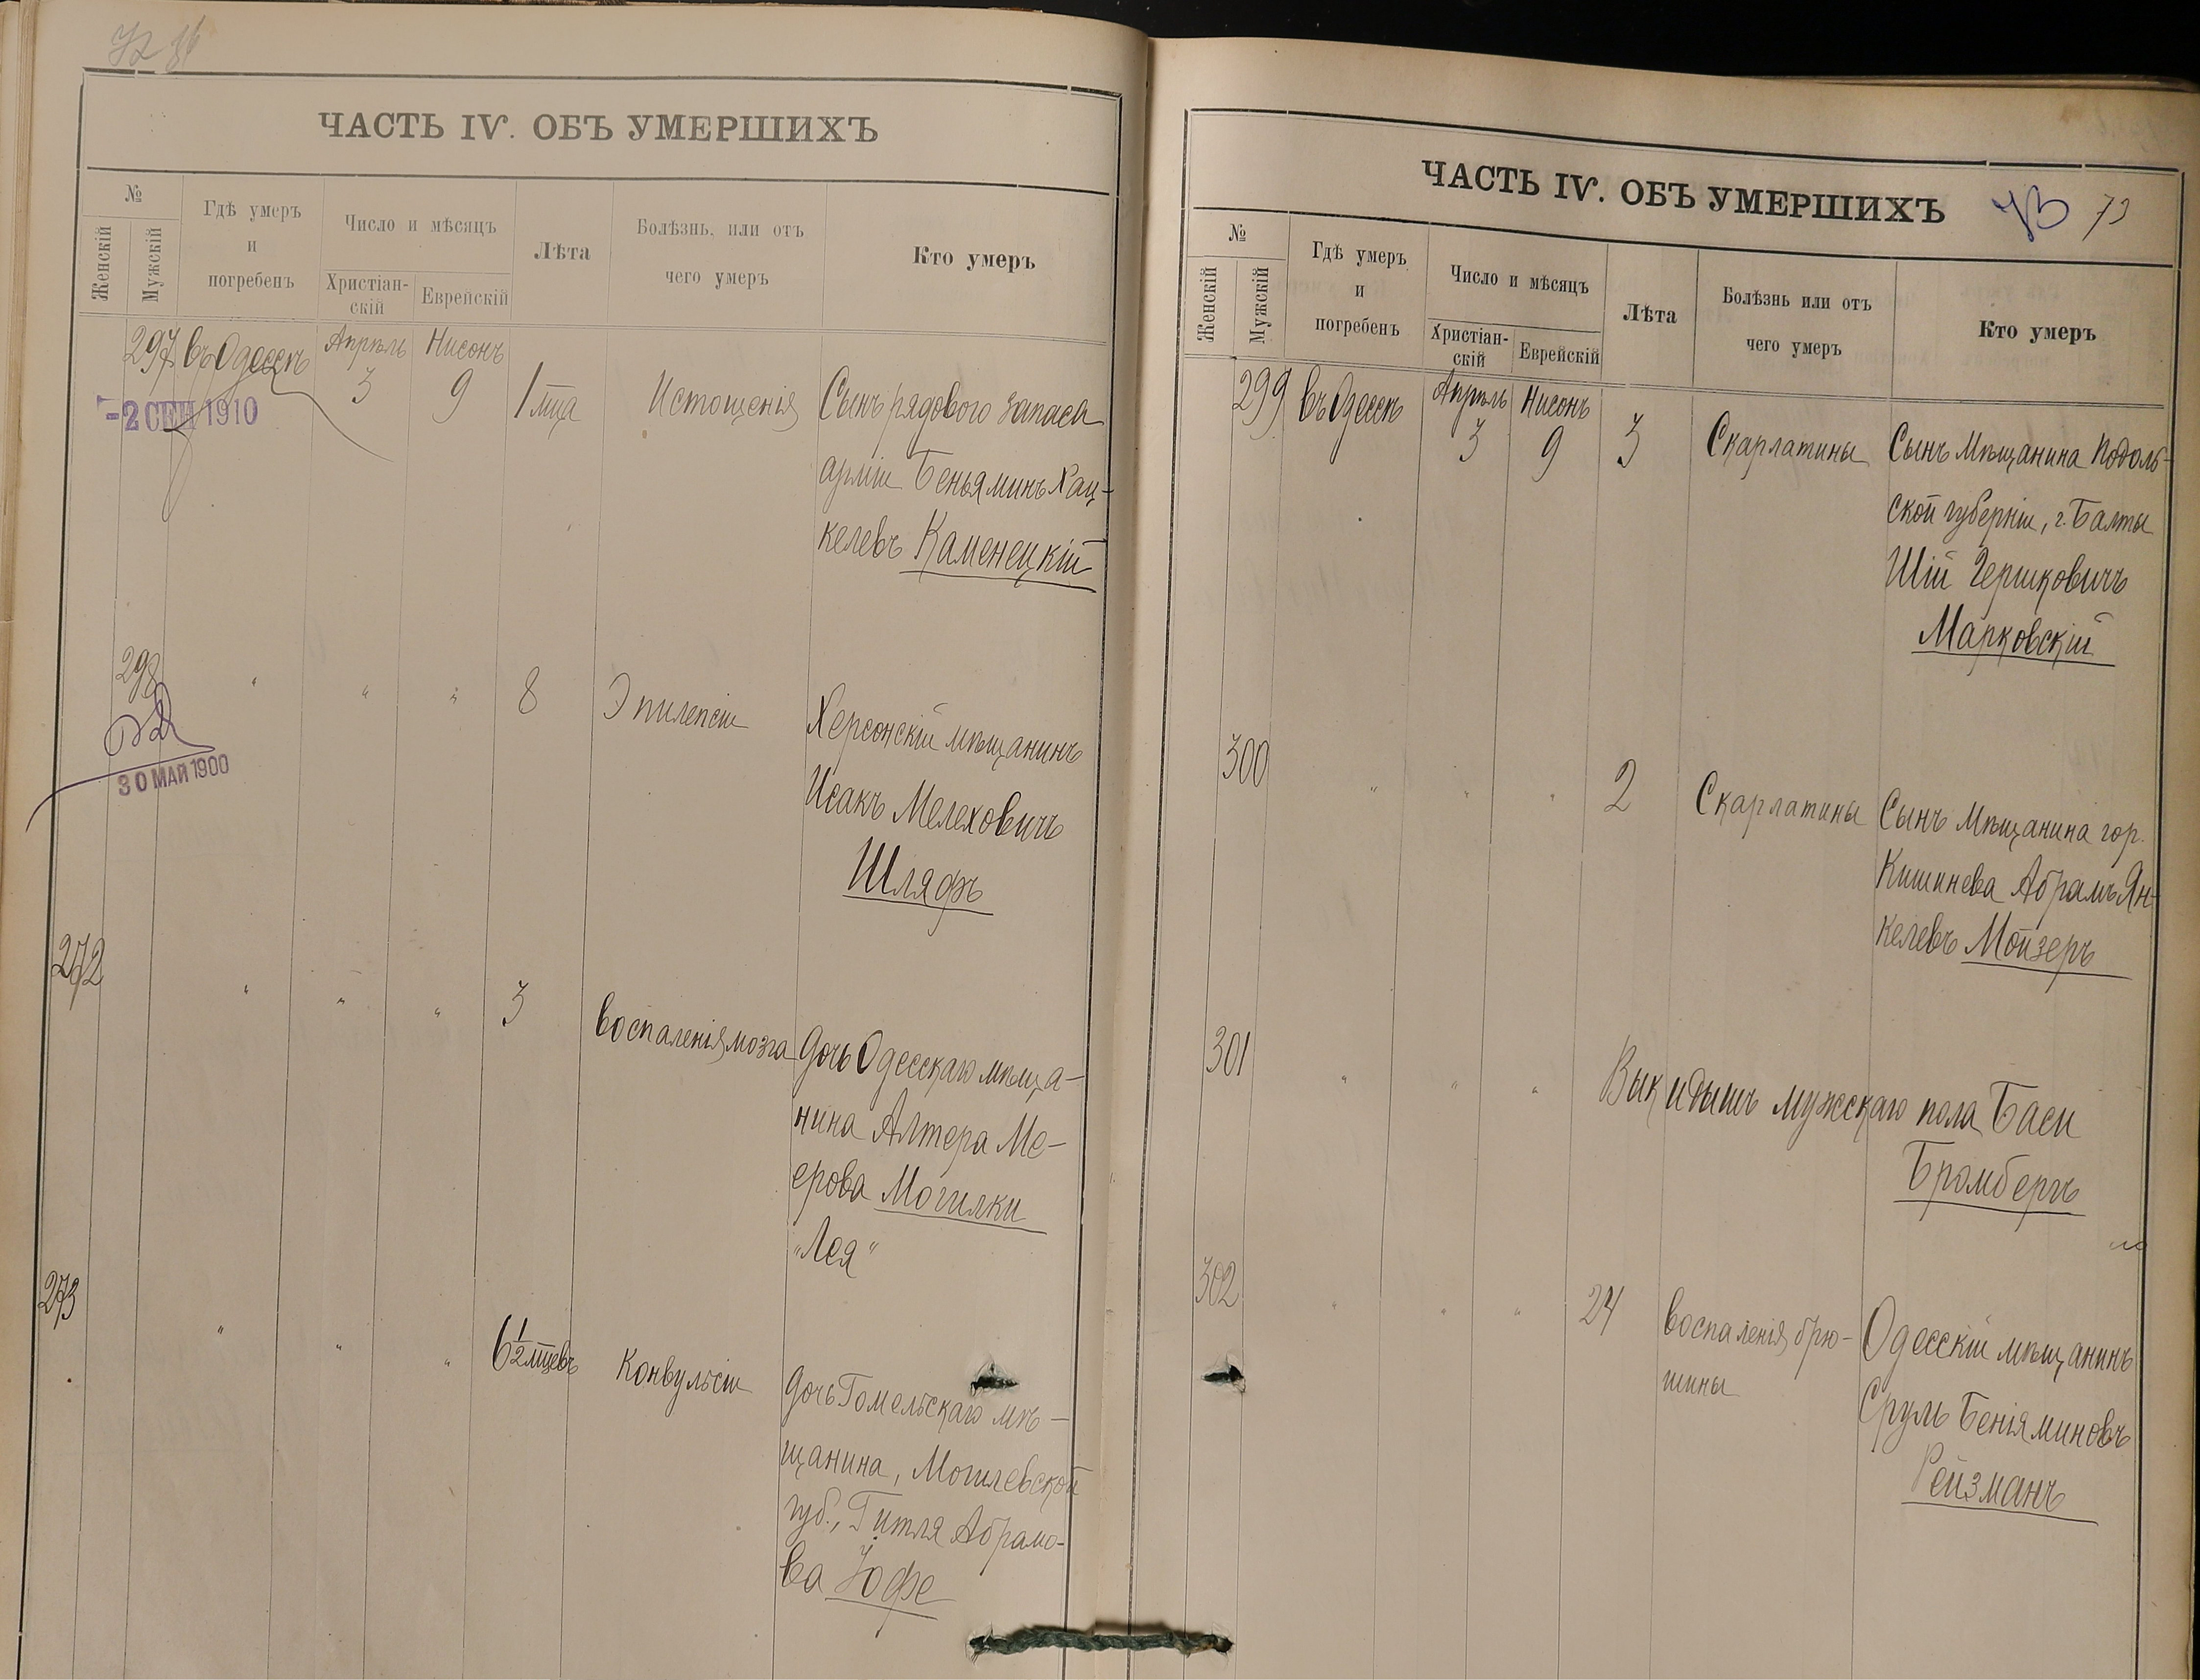 ЧАСТЬ IV. ОБЪ УМЕРШИХЪ
№
Женскій
Мужскій
Гдѣ умеръ
и
погребенъ
Число и мѣсяцъ
Христіан-
скій
Еврейскій
Лѣта
Болѣзнь. или отъ
чего умеръ
Кто умеръ
297 въ Одессѣ Апрѣль Нисонъ
3 9 1 мца Истощенія Сынъ рядового запаса
арміи Беньяминъ Хац-
келевъ Каменецкій
-2 СЕН 1910
298 " " " 8 Эпилепсіи Херсонскій мѣщанинъ
Исакъ Мелеховичъ
Шляфъ
30 МАЯ 1900
272 " " " 3 воспаленія мозга Дочь Одесскаго мѣща-
нина Алтера Ме-
ерова Могилки
"Лея"
273 " " " 6 1/2 мцевъ Конвульсіи Дочь Гомельскаго мѣ-
щанина, Могилевской
губ., Гитля Абрамо-
ва Іофе
ЧАСТЬ IV. ОБЪ УМЕРШИХЪ
73 73
№
Женскій
Мужскій
Гдѣ умеръ
и
погребенъ
Число и мѣсяцъ
Христіан-
скій
Еврейскій
Лѣта
Болѣзнь или отъ
чего умеръ
Кто умеръ
299 въ Одессѣ Апрѣль Нисонъ
3 9 3 Скарлатины Сынъ мѣщанина Подоль-
ской губерніи, г. Балты
Шій Гершковичъ
Марковскій
300 " " " 2 Скарлатины Сынъ мѣщанина гор.
Кишинева Абрамъ Ян-
келевъ Мойзеръ
301 " " " Выкидышъ мужскаго пола Баси
Бромбергъ
302 " " " 24 воспаленія брю- Одесскій мѣщанинъ
шины Сруль Беніяминовъ
Рейзманъ